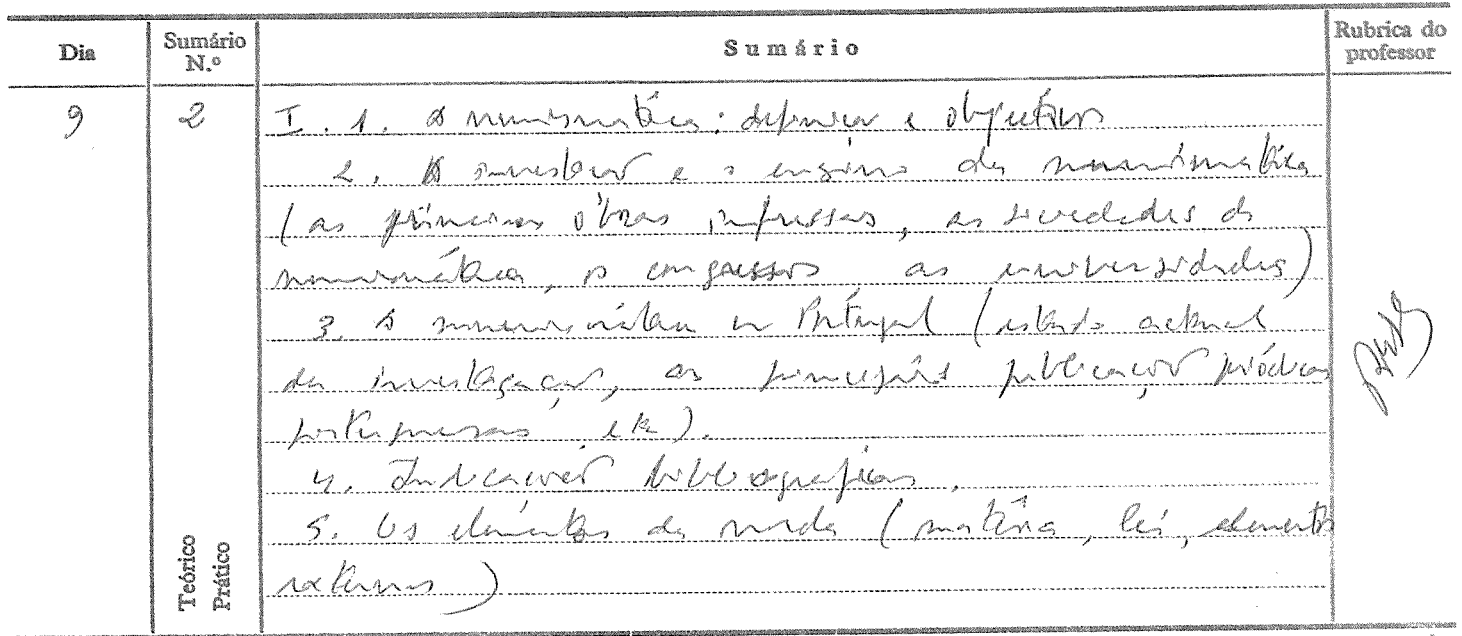 Dia
Sumário
N.º
Sumário
Rubrica do
professor
9
2
I. 1. A numismática: definição e objectivos
2. A investigação e o ensino da numismática
(as primeiras obras impressas, as sociedades de
numismática, os congressos as universidades)
3. A numismática em Portugal (estado actual
da investigação, as principais publicações periódicas
portuguesas, etc).
4. Indicações bibliográficas.
5. Os elementos da moeda (matéria, lei, elementos
externos)
Teórico
Prático